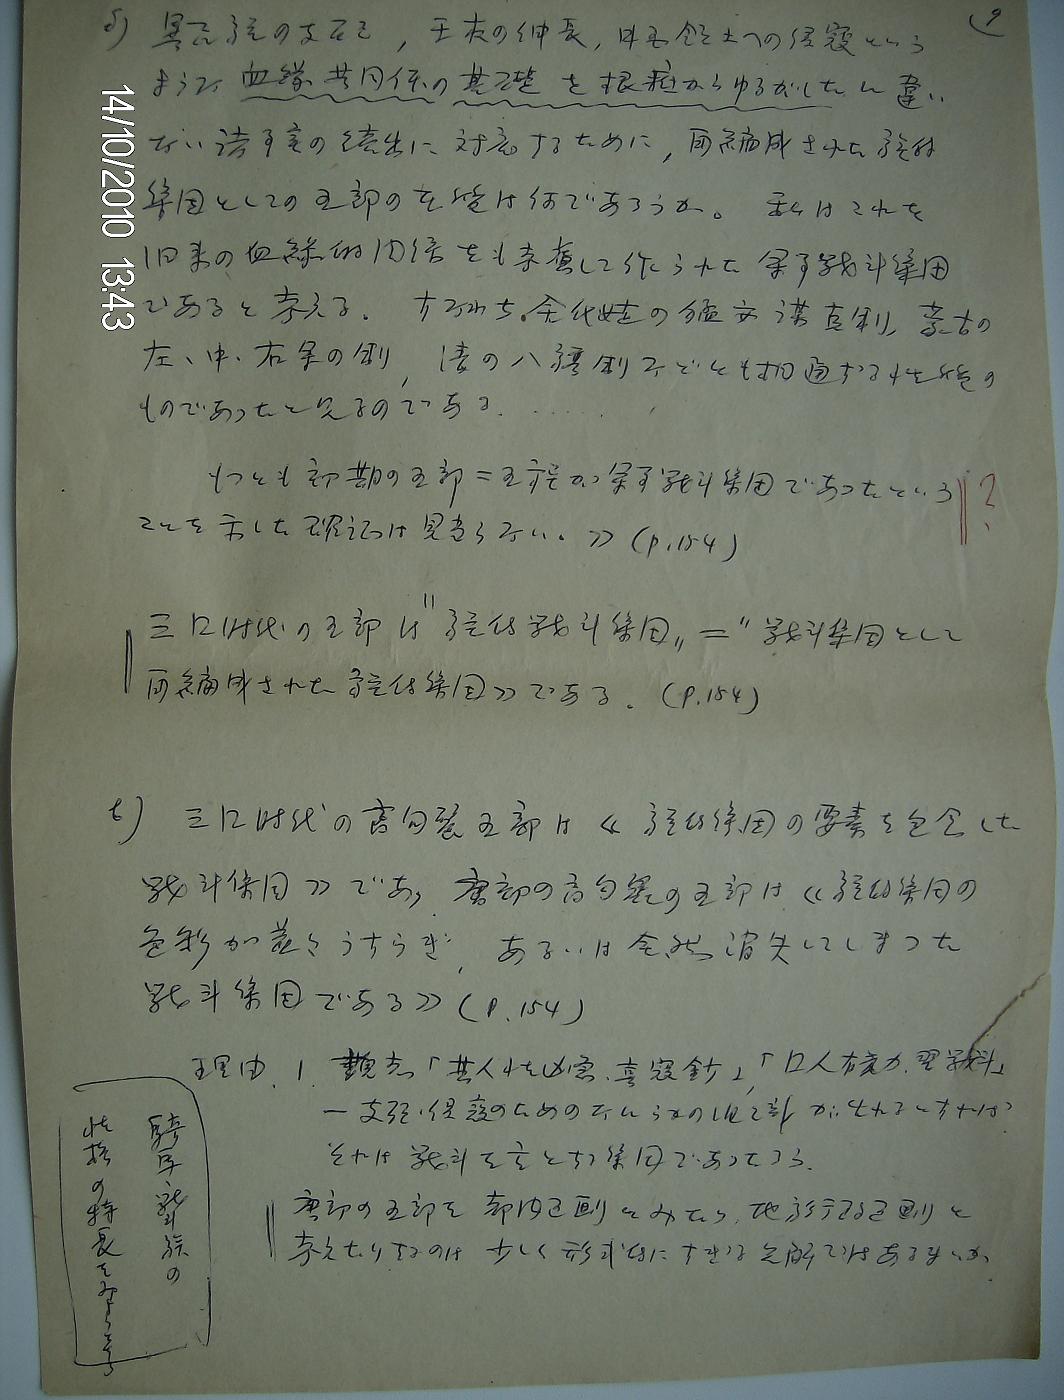 9
異種族の支配、王权の伸長、中国领土への侵寇という
ような血縁共同体の基礎を根底からゆるがしたに違い
ない諸事実の続出に対応するために、再編成された族的
集団としての五部の本質は何であろうか。私はこれを
旧来の血縁的関係をも 作られた军事戦斗集団
であると考える。すなわち、金代女真の猛安謀克制、蒙古の
左、中、右军の制、清の八旗制などとも相通ずる性質の
ものであったと見るのである. . . . . . .
もっとも初期の五部=五族が军事戦斗集団であったという
ことを示した確証は見当らない。》(P.154)
?
三国时代の五部は"族的戦斗集団"="戦斗集団として
再編成された族的集団》である。(P.154)
七) 三国时代の高句麗五部は《族的集団の要素を包含した
戦斗集団》であり 唐部の高句麗の五部は《族的集団の
色彩が益々うすらぎ、あるいは全然消失してしまった
戦斗集団である》(P.154)
理由. 1. 魏志「其人性凶急、喜寇鈔」,「国人有気力、習戦斗」
それは戦斗を主とする集団であったろう.
唐部の五部を部内区画とみたり、地方行政区画と
考えたりするのは少しく形式的にすぎる見解ではあるまいか
騎馬戦斗族の
性格の特長をみようとする
14/10/2010 13:43